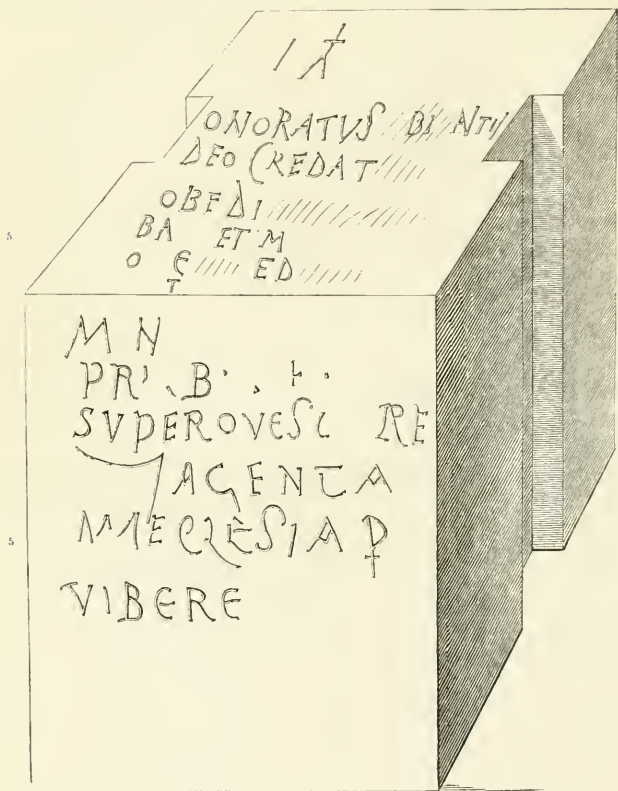 ONORATVS BI ANTI
DEO CREDAT
OBEDI
BA ET M
O ET ED
5
M N
PR B
SVPEROVESC RE
AGENTA
5
ECLESIA
VIBERE